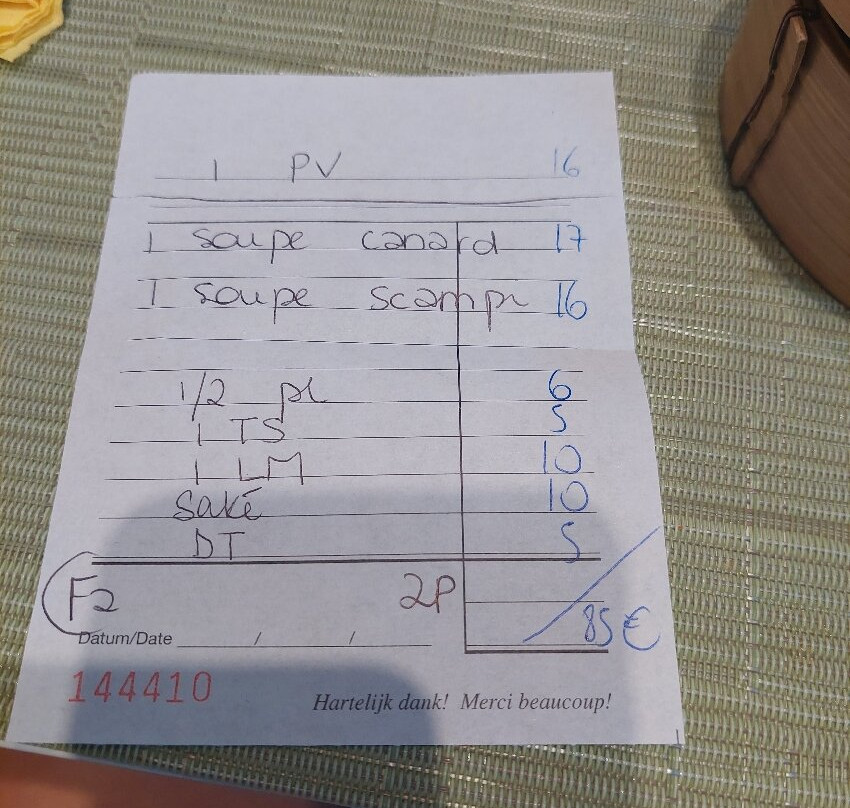 1 PV 16
1 soupe canard 17
1 soupe scampi 16
1/2 pl 6
1 TS 5
1 LM 10
Saké 10
DT 5
F2 2P
85 €
Datum/Date / /
144410 Hartelijk dank! Merci beaucoup!